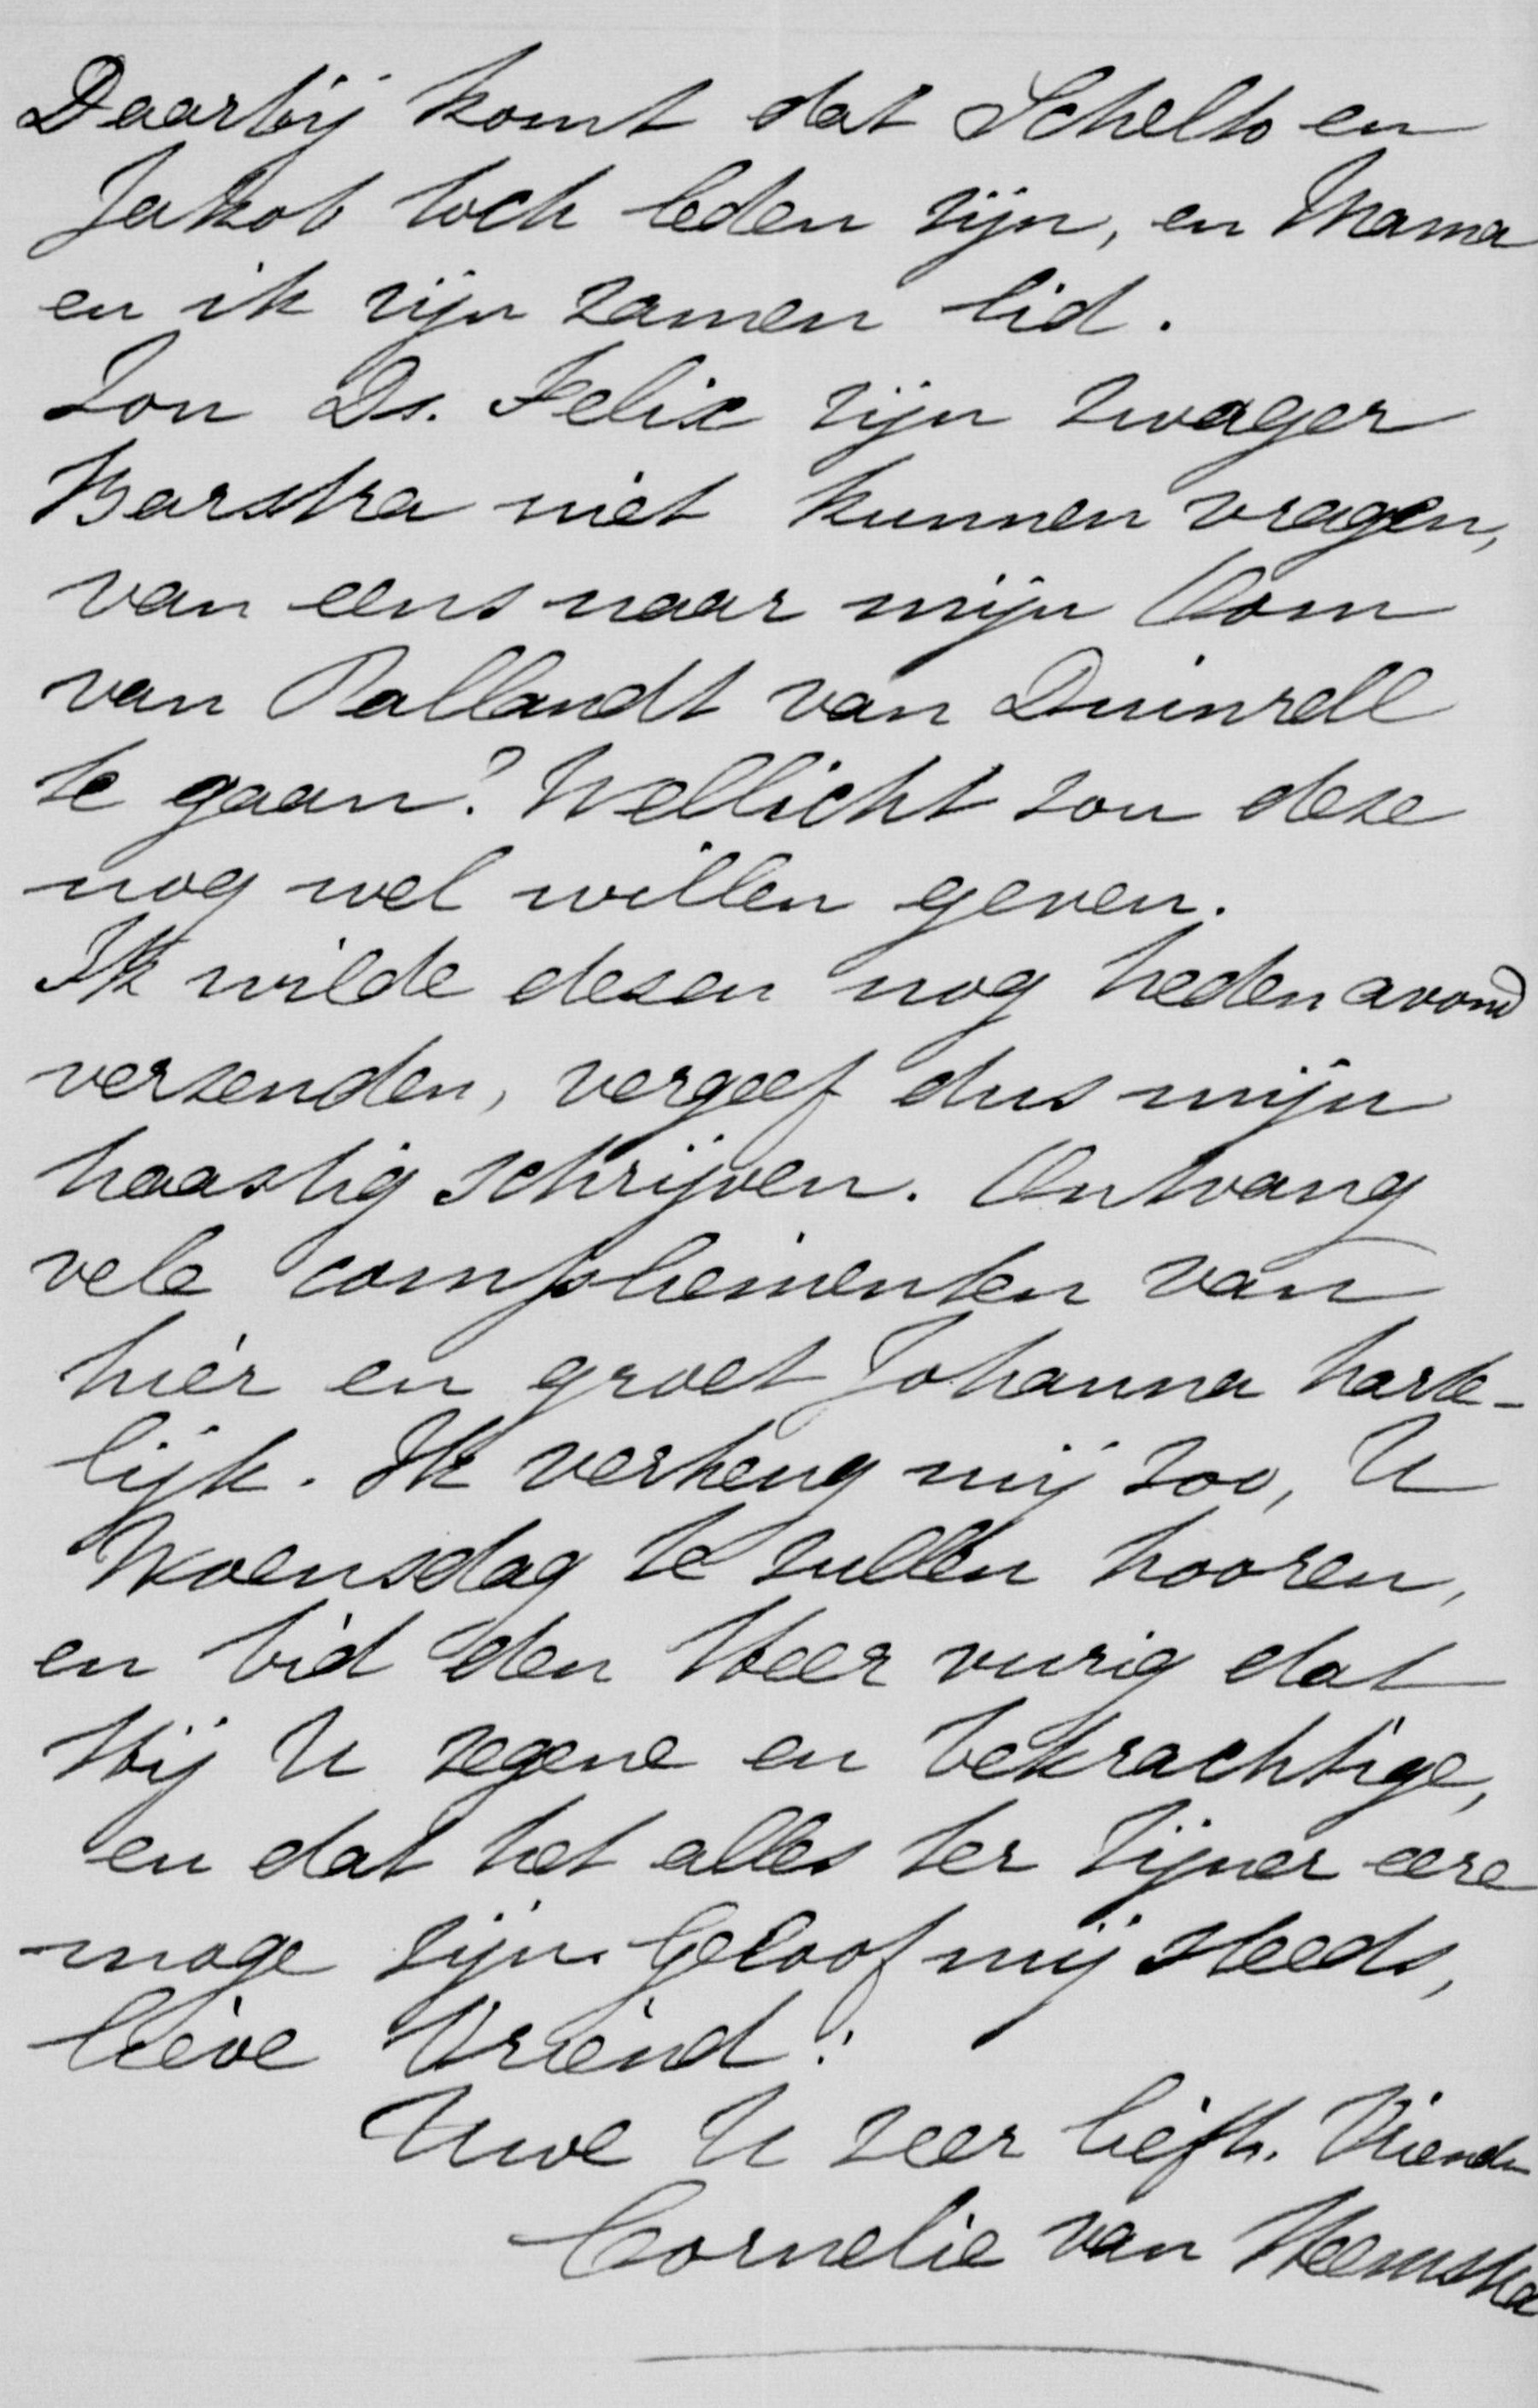 Daarbij komt dat Schelto en
Jakob toch leden zijn, en Mama
en ik zijn zamen lid.
Zou Ds. Felix zijn zwager
Barstra niet kunnen vragen,
van eens naar mijn Oom
van Pallandt van Duinrell
te gaan? Wellicht zou deze
nog wel willen geven.
Ik wilde dezen nog heden avond
verzenden, vergeef dus mijn
haastig schrijven. Ontvang
vele complimenten van
hier en groet Johanna harte-
lijk. Ik verheug mij zoo, U
Woensdag te zullen hooren,
en bid den Heer vurig dat
Hij U zegene en bekrachtige,
en dat het alles ter Zijner eere
moge zijn. Geloof mij steeds,
lieve Vriend!
Uwe U zeer liefh. Vriendn
Cornelie van Heemstra